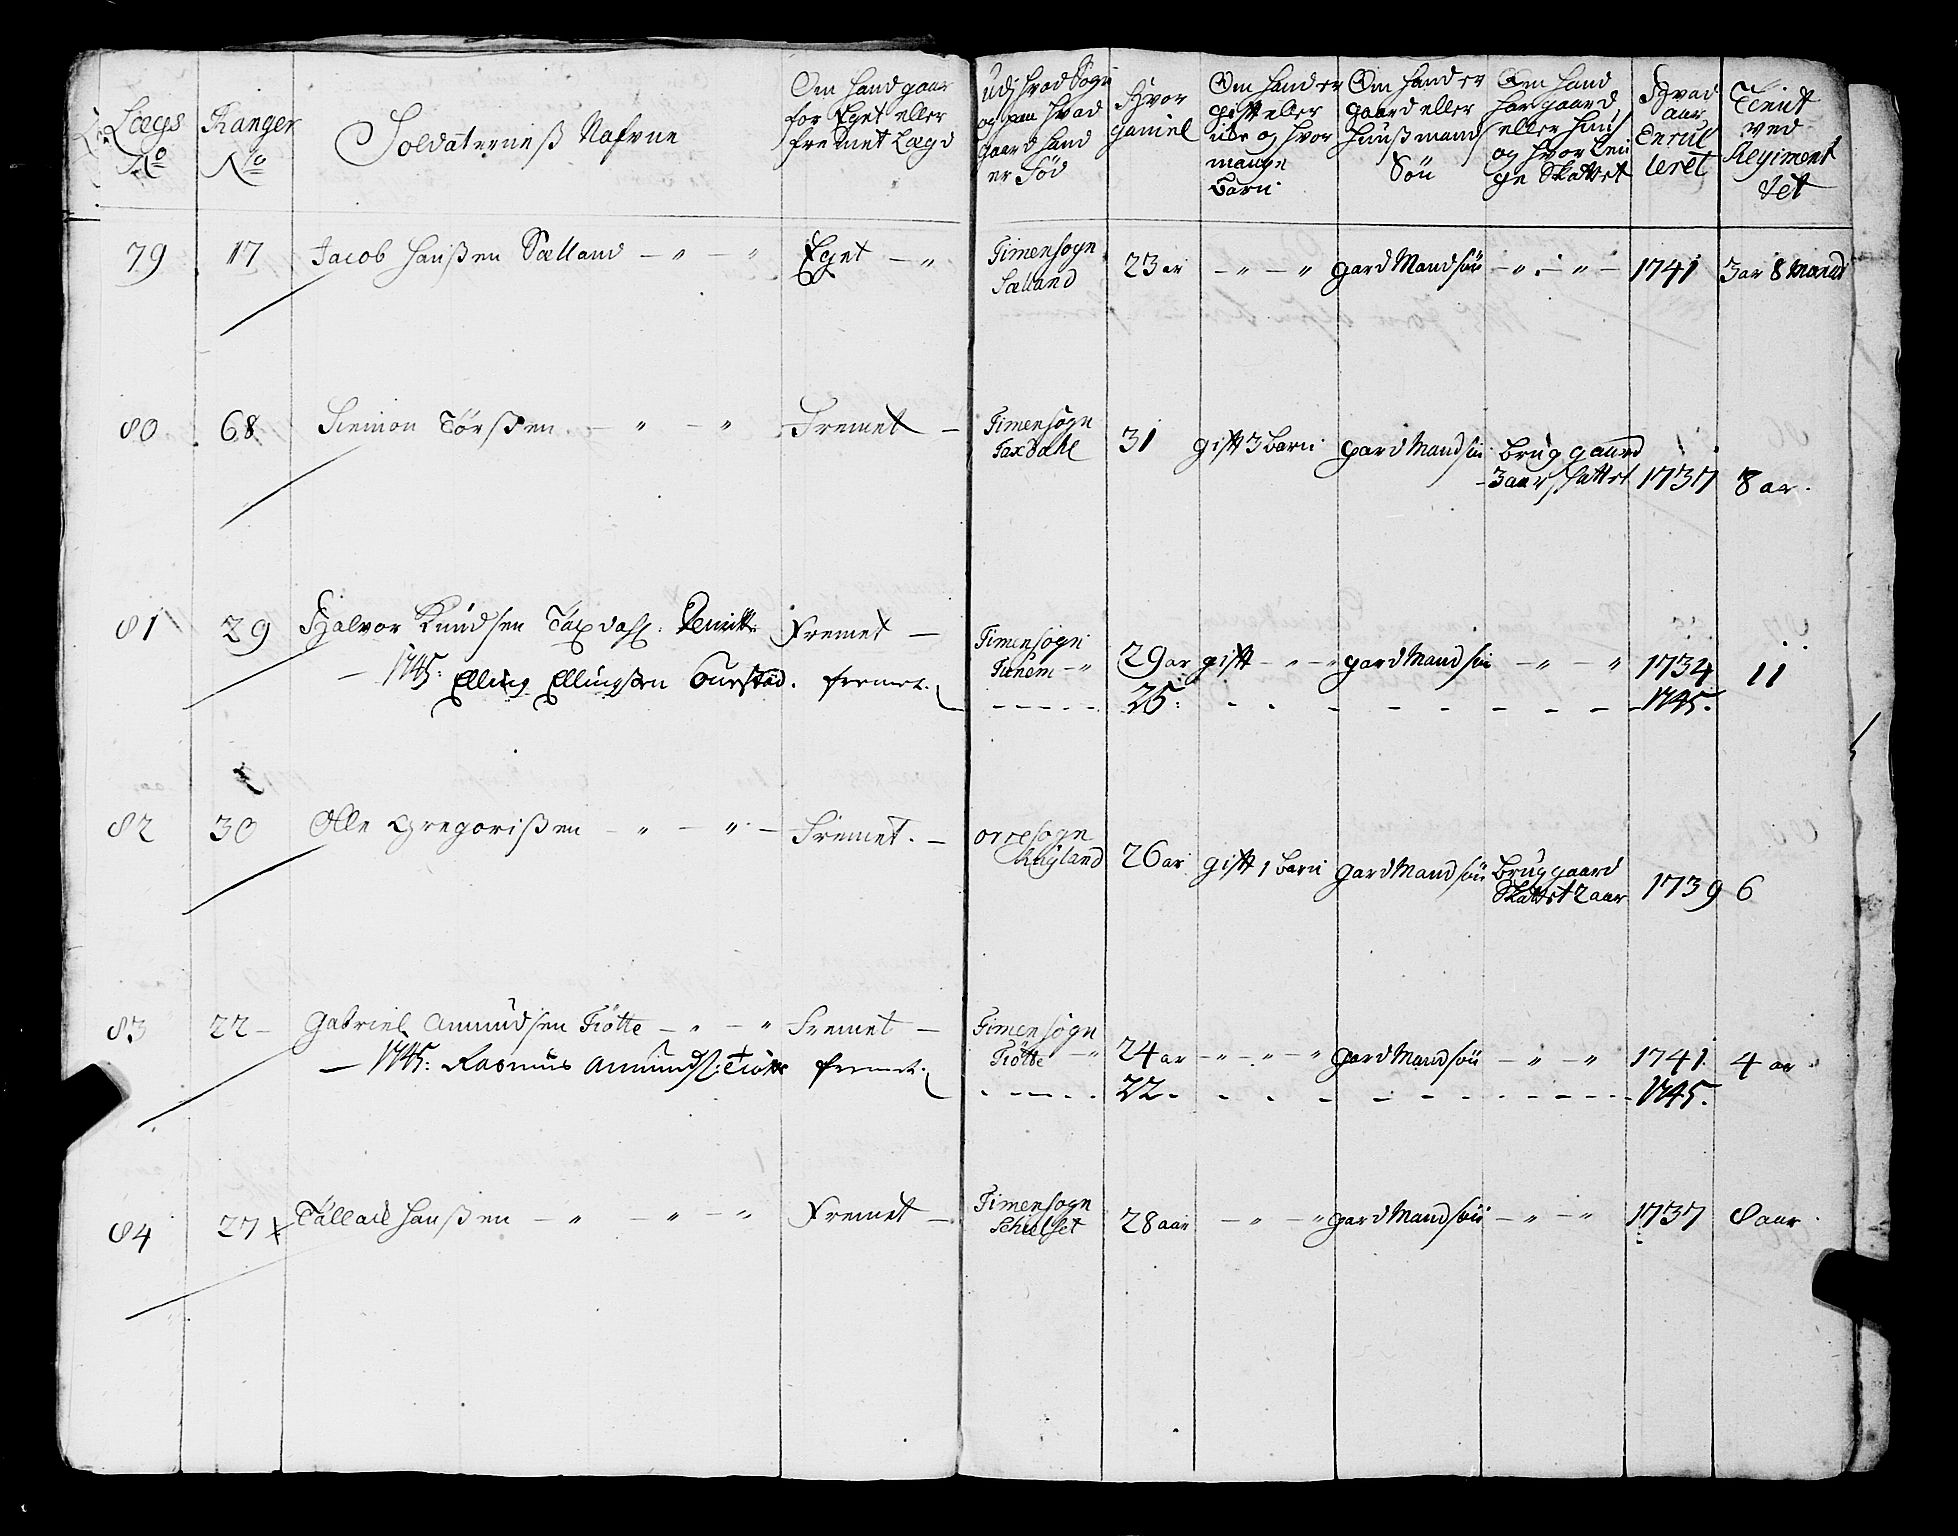 Lægs No
Ranger No
Soldaterneß Nafvne
Om hand gaar for Eget eller fremet Lægd
Udj hvad Sogn og paa hvad gaard hand er Fød
Hvor gamel
Om hand er gift eller og hvor mange barn
Om hand er gaard eller huußmand Søn
Om hand har gaard eller huus og hvor lenge Skattet
Hvad aar Enrulleret
Tient ved Regimentet
79 17 Jacob Hanßen Sælland – " – " Eget – " Timensogn Sælland 23 ar – " – " gard Mand søn – " – " – 1741 3 ar 8 Maned
80 68 Siemon Törßen – " – " Fremet – Timensogn Taxdahl 31 gift 3 barn gard Mand søn brug gaard 3 aar skattet 1737 8 ar.
81 29 Halvor Knudsen Taxdahl. Fremet – Timensogn Tanem – " 29 ar gift – " – " gard Mand søn – " – " 1734 11
– 1745: Elling Ellingsen fremet. – – – – – 25: – – – – – – – 1745.
82 30 Olle Gregorißen – " – " – Fremet. – orresogn 26 ar gift 1 barn gard Mand søn brug gaard Skattet 2 aar 1739 6
83 22 – Gabriel Amundsen Tiötte – " – " Fremet – Timensogn Tiötte – " 24 ar – " – " – " gard Mand søn – " – " 1741 4 ar
– 1745: Rasmus Amunds: Tiötte fremet: – – – – – 22 – – – – – – – – 1745.
84 27 Tallack Hanßen – " – " – " Fremet – Timensogn 28 aar – " – " gard Mand søn – " – " 1737 8 aar